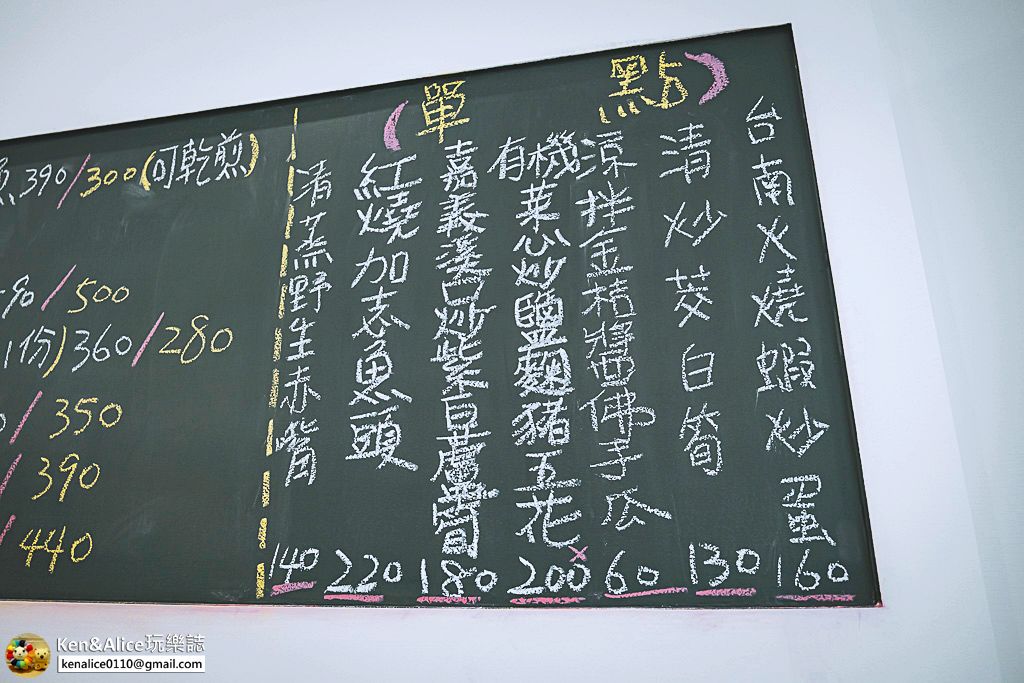 (單點)
台南火燒蝦炒蛋 160
清炒茭白筍 130
涼拌金桔醬佛手瓜 60
有機菜心炒鹽麴豬五花 200
嘉義溪口炒紫白蘆筍 180
紅燒加志魚頭 220
清蒸野生赤嘴 140
魚390/300(可乾煎)
90/500
1份)360/280
0/350
/390
/440
Ken&Alice玩樂誌
kenalice0110@gmail.com